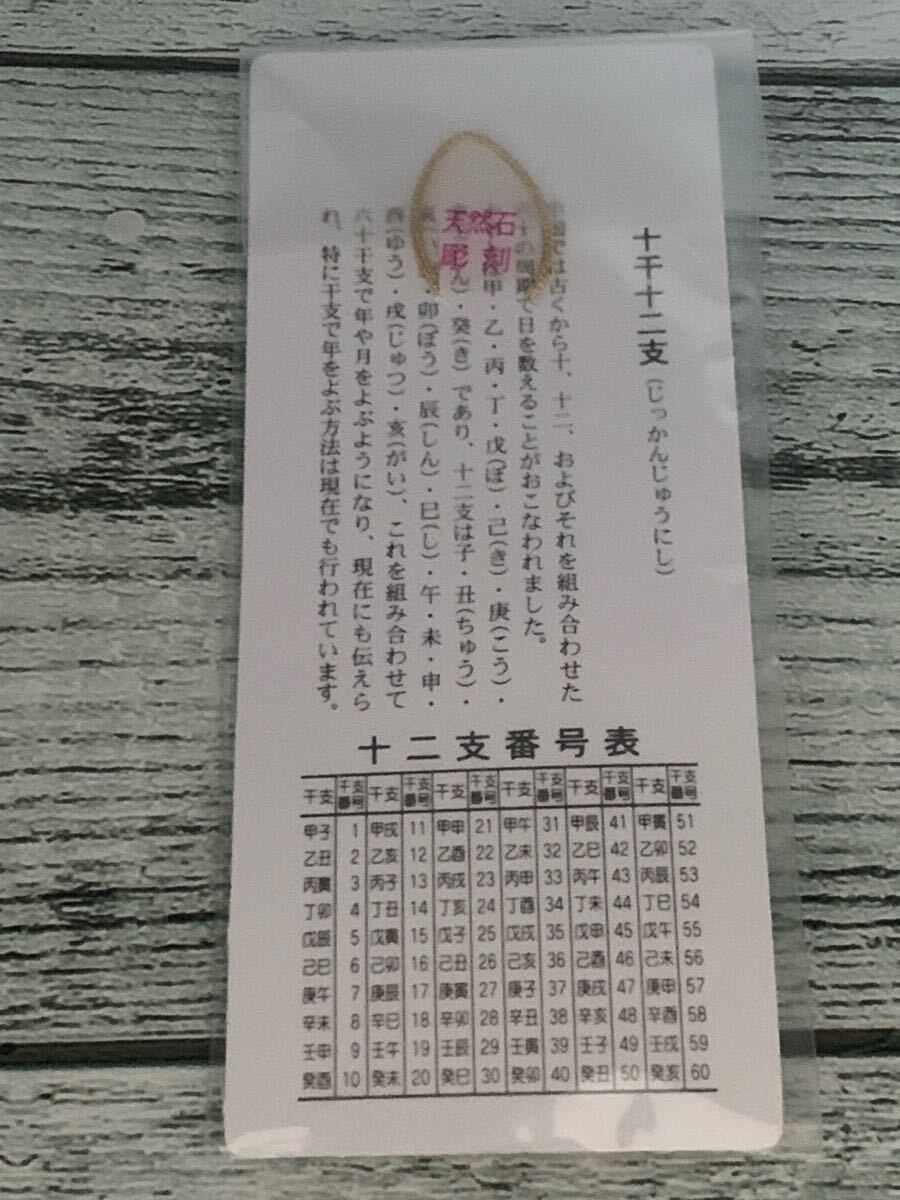 十干十二支（じっかんじゅうにし）
では古くから十、十二、およびそれを組み合わせた
の周期で日を数えることがおこなわれました。
甲・乙・丙・丁・戊(ぼ)・己(き)・庚(こう)・
ん)・癸(き)であり、十二支は子・丑(ちゅう)・
・卯(ぼう)・辰(しん)・巳(し)・午・未・申・
酉(ゆう)・戌(じゅつ)・亥(がい)、これを組み合わせて
六十干支で年や月をよぶようになり、現在にも伝えら
れ、特に干支で年をよぶ方法は現在でも行われています。
天然石
彫刻
十二支番号表
干支 干支番号 干支 干支番号 干支 干支番号 干支 干支番号 干支 干支番号 干支 干支番号
甲子 1 甲戌 11 甲申 21 甲午 31 甲辰 41 甲寅 51
乙丑 2 乙亥 12 乙酉 22 乙未 32 乙巳 42 乙卯 52
丙寅 3 丙子 13 丙戌 23 丙申 33 丙午 43 丙辰 53
丁卯 4 丁丑 14 丁亥 24 丁酉 34 丁未 44 丁巳 54
戊辰 5 戊寅 15 戊子 25 戊戌 35 戊申 45 戊午 55
己巳 6 己卯 16 己丑 26 己亥 36 己酉 46 己未 56
庚午 7 庚辰 17 庚寅 27 庚子 37 庚戌 47 庚申 57
辛未 8 辛巳 18 辛卯 28 辛丑 38 辛亥 48 辛酉 58
壬申 9 壬午 19 壬辰 29 壬寅 39 壬子 49 壬戌 59
癸酉 10 癸未 20 癸巳 30 癸卯 40 癸丑 50 癸亥 60